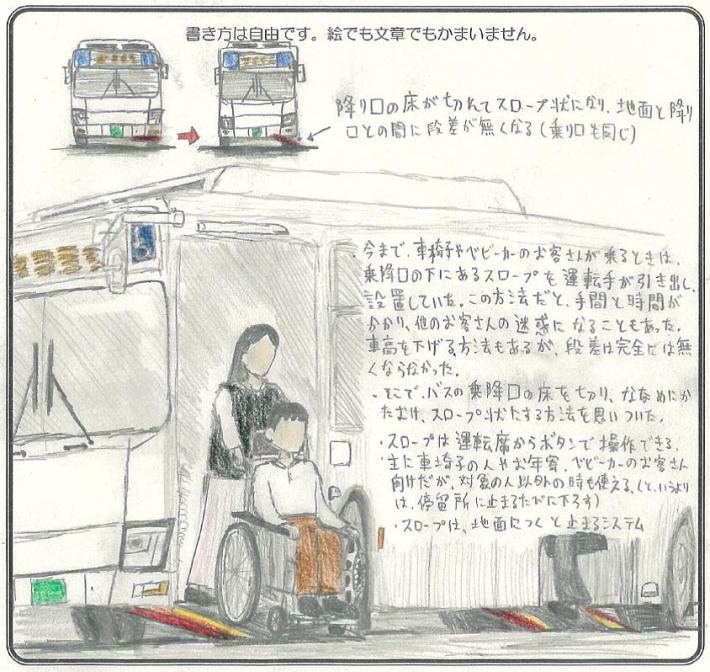 書き方は自由です。絵でも文章でもかまいません。
降り口の床が切れてスロープ状になり、地面と降り
口との間に段差が無くなる(乗り口も同じ)
・今まで、車椅子やベビーカーのお客さんが乗るときは、
乗降口の下にあるスロープを運転手が引き出し、
設置していた。この方法だと、手間と時間が
かかり、他のお客さんの迷惑になることもあった。
車高を下げる方法もあるが、段差は完全には無
くならなかった。
・そこで、バスの乗降口の床を切り、ななめにか
たむけ、スロープ状にする方法を思いついた。
・スロープは運転席からボタンで操作できる。
・主に車椅子の人やお年寄、ベビーカーのお客さん
向けだが、対象の人以外の時も使える。(というより
は、停留所に止まるたびに下ろす)
・スロープは、地面につくと止まるシステム